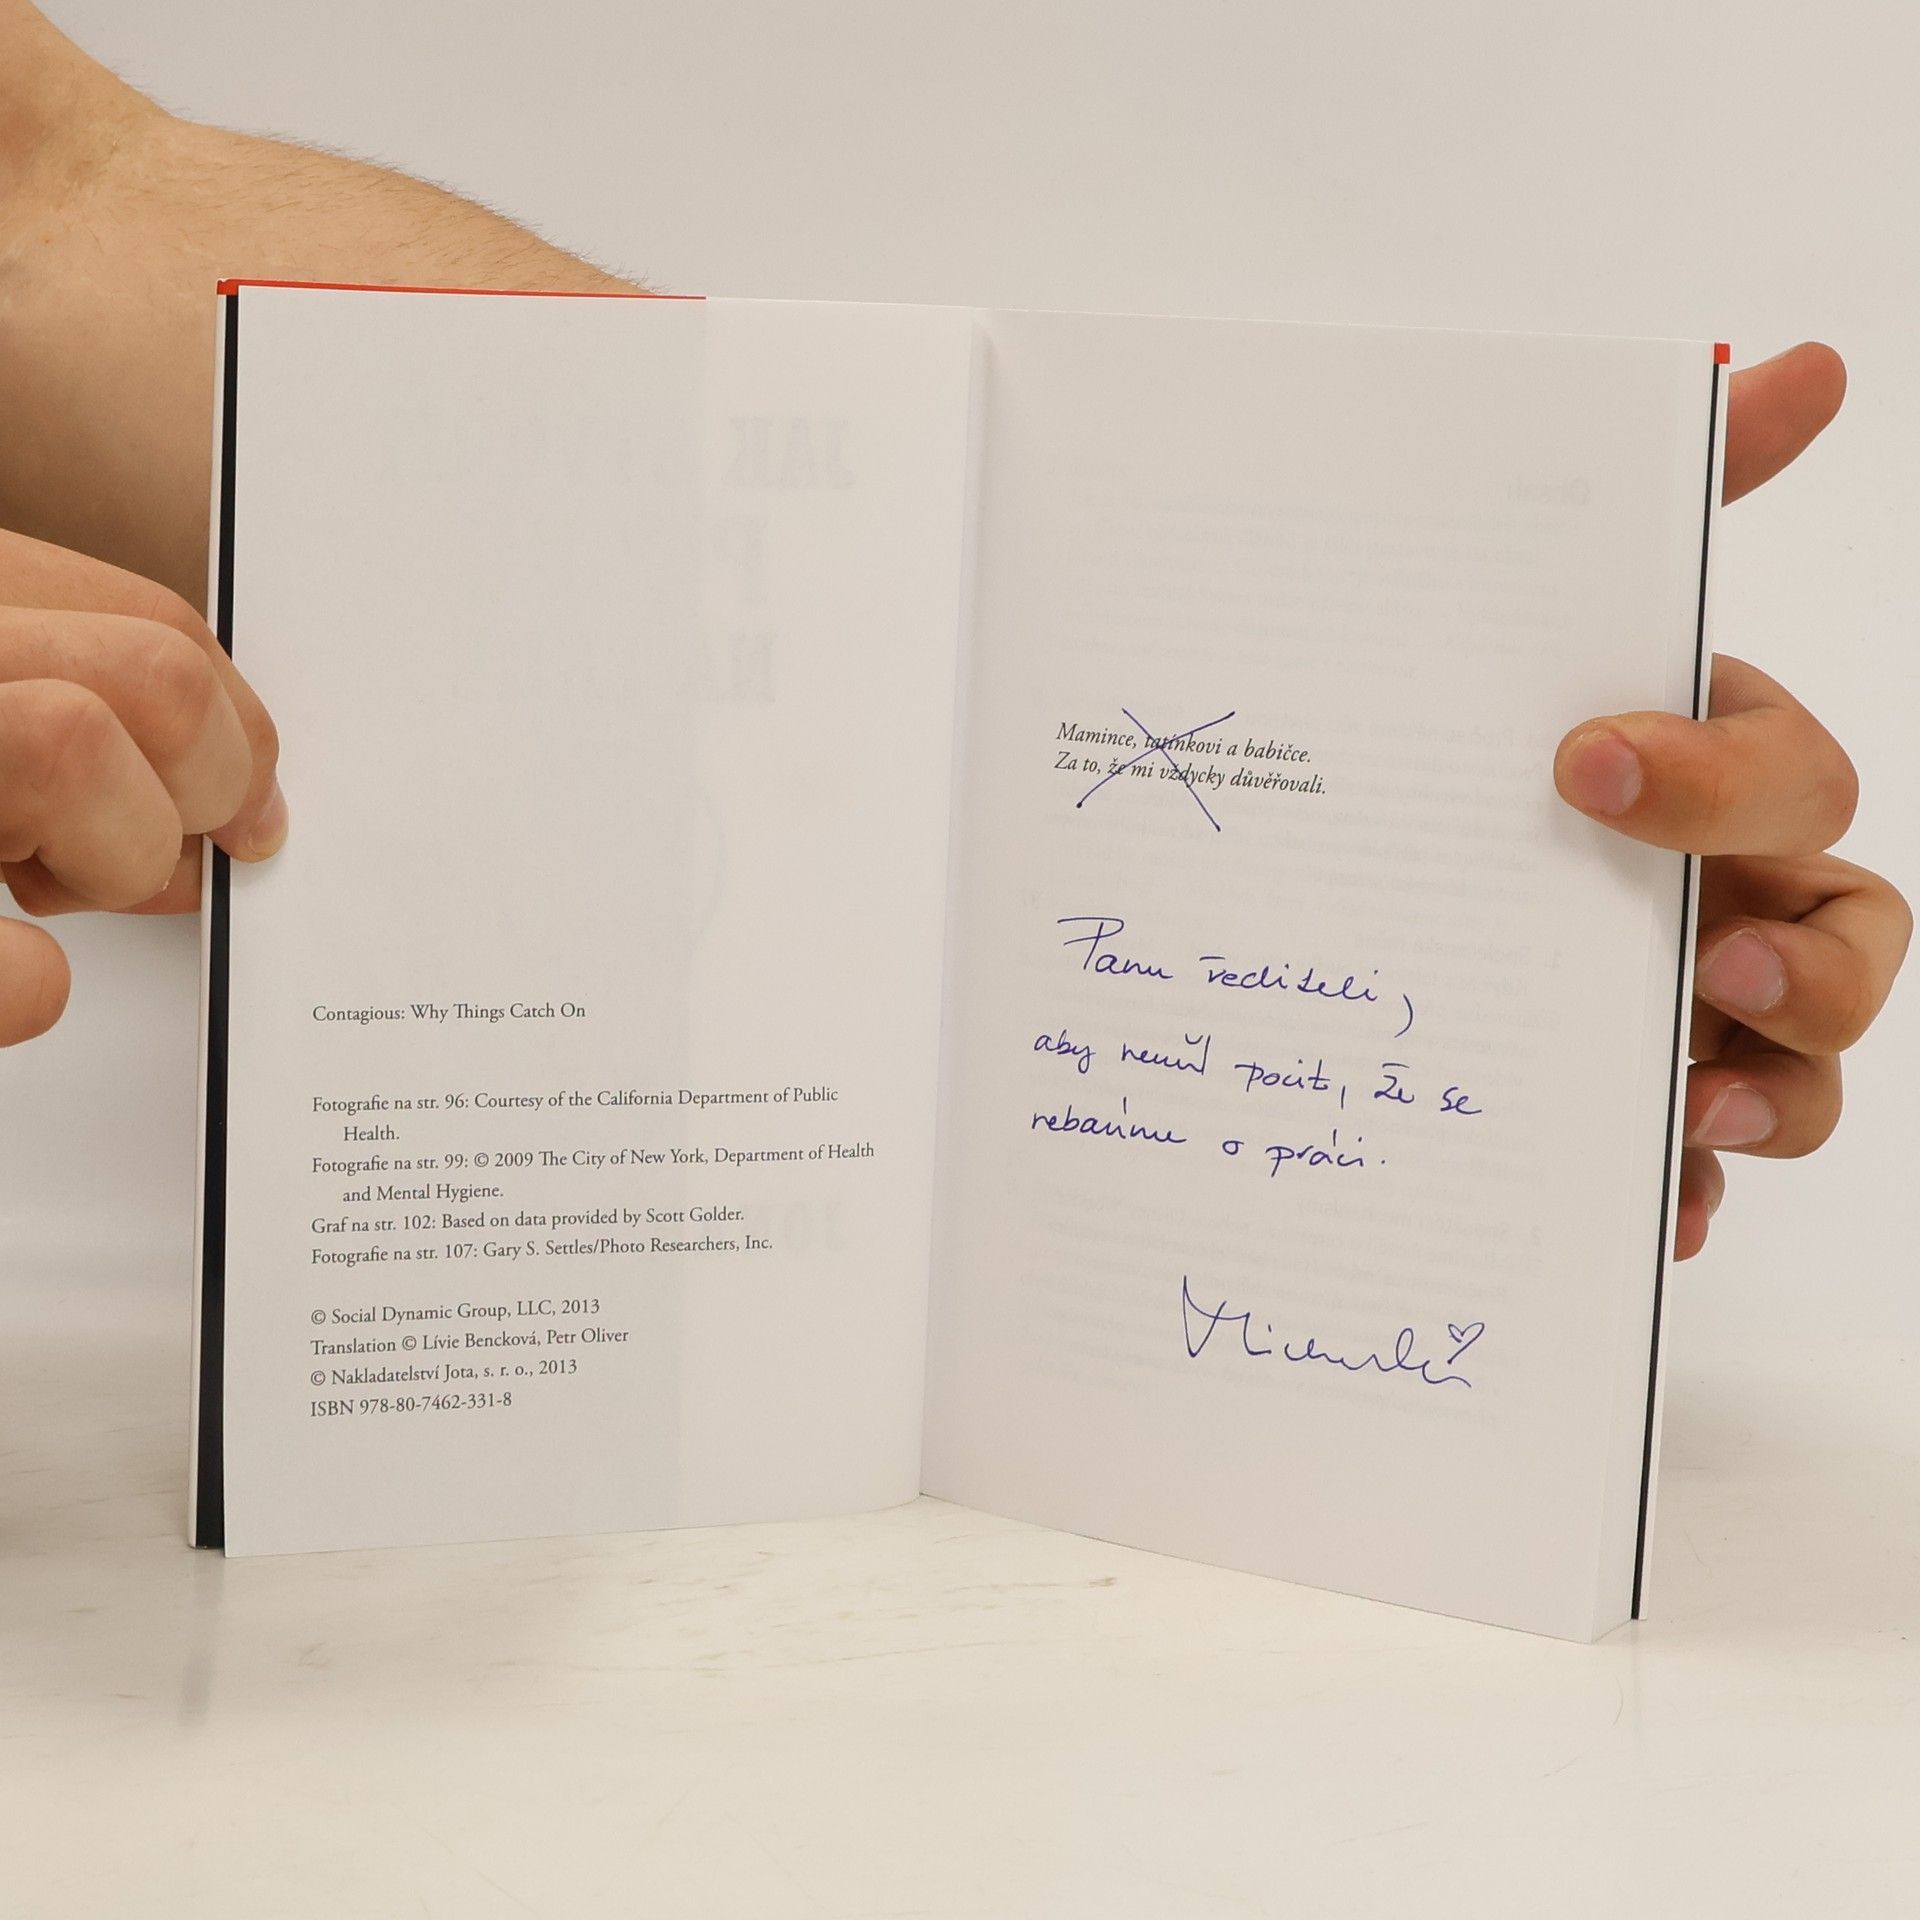 Contagious: Why Things Catch On
Fotografie na str. 96: Courtesy of the California Department of Public
Health.
Fotografie na str. 99: © 2009 The City of New York, Department of Health
and Mental Hygiene.
Graf na str. 102: Based on data provided by Scott Golder.
Fotografie na str. 107: Gary S. Settles/Photo Researchers, Inc.
© Social Dynamic Group, LLC, 2013
Translation © Lívie Bencková, Petr Oliver
© Nakladatelství Jota, s. r. o., 2013
ISBN 978-80-7462-331-8
Mamince, tatínkovi a babičce.
Za to, že mi vždycky důvěřovali.
Panu řediteli,
aby neměl pocit, že se
nebavíme o práci.